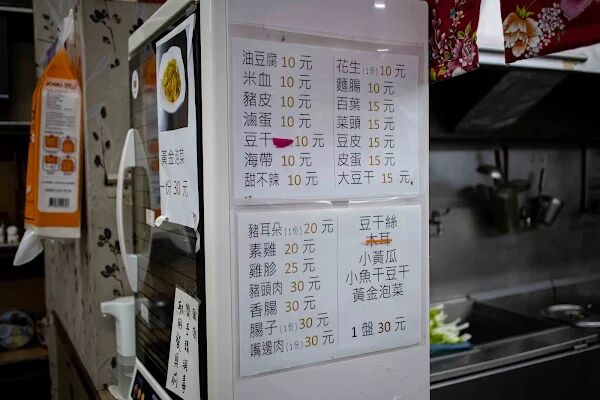 油豆腐 10 元
米血 10 元
豬皮 10 元
滷蛋 10 元
豆干 10 元
海帶 10 元
甜不辣 10 元
花生(1份) 10 元
麵腸 10 元
百葉 15 元
菜頭 15 元
豆皮 15 元
皮蛋 15 元
大豆干 15 元
豬耳朵(1份) 20 元
素雞 20 元
雞胗 25 元
豬頭肉 30 元
香腸 30 元
腸子(1份) 30 元
嘴邊肉(1份) 30 元
豆干絲
木耳
小黃瓜
小魚干豆干
黃金泡菜
1 盤 30 元
黃金泡菜
一份 30 元